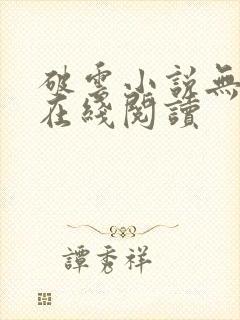 破雲小説無
在綫閱讀
譚秀祥